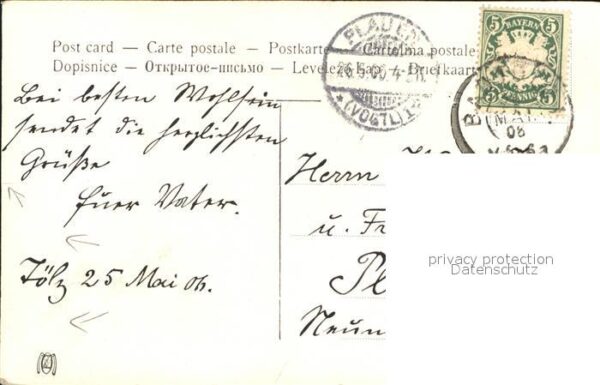 Post card — Carte postale — Postkarte — Cartolina postale
Dopisnice — Открытое-письмо — Levelező — Briefkaart
PLAUEN
26.5.06. 4-5N.
*(VOGTL) 1*
5 BAYERN 5
5 PFENNIG 5
MAI
06
Bei besten Wohlsein
sendet die herzlichsten
Grüße
Euer Vater.
Tölz 25 Mai 06.
Herrn
u. Fr
Pl
Neun
privacy protection
Datenschutz